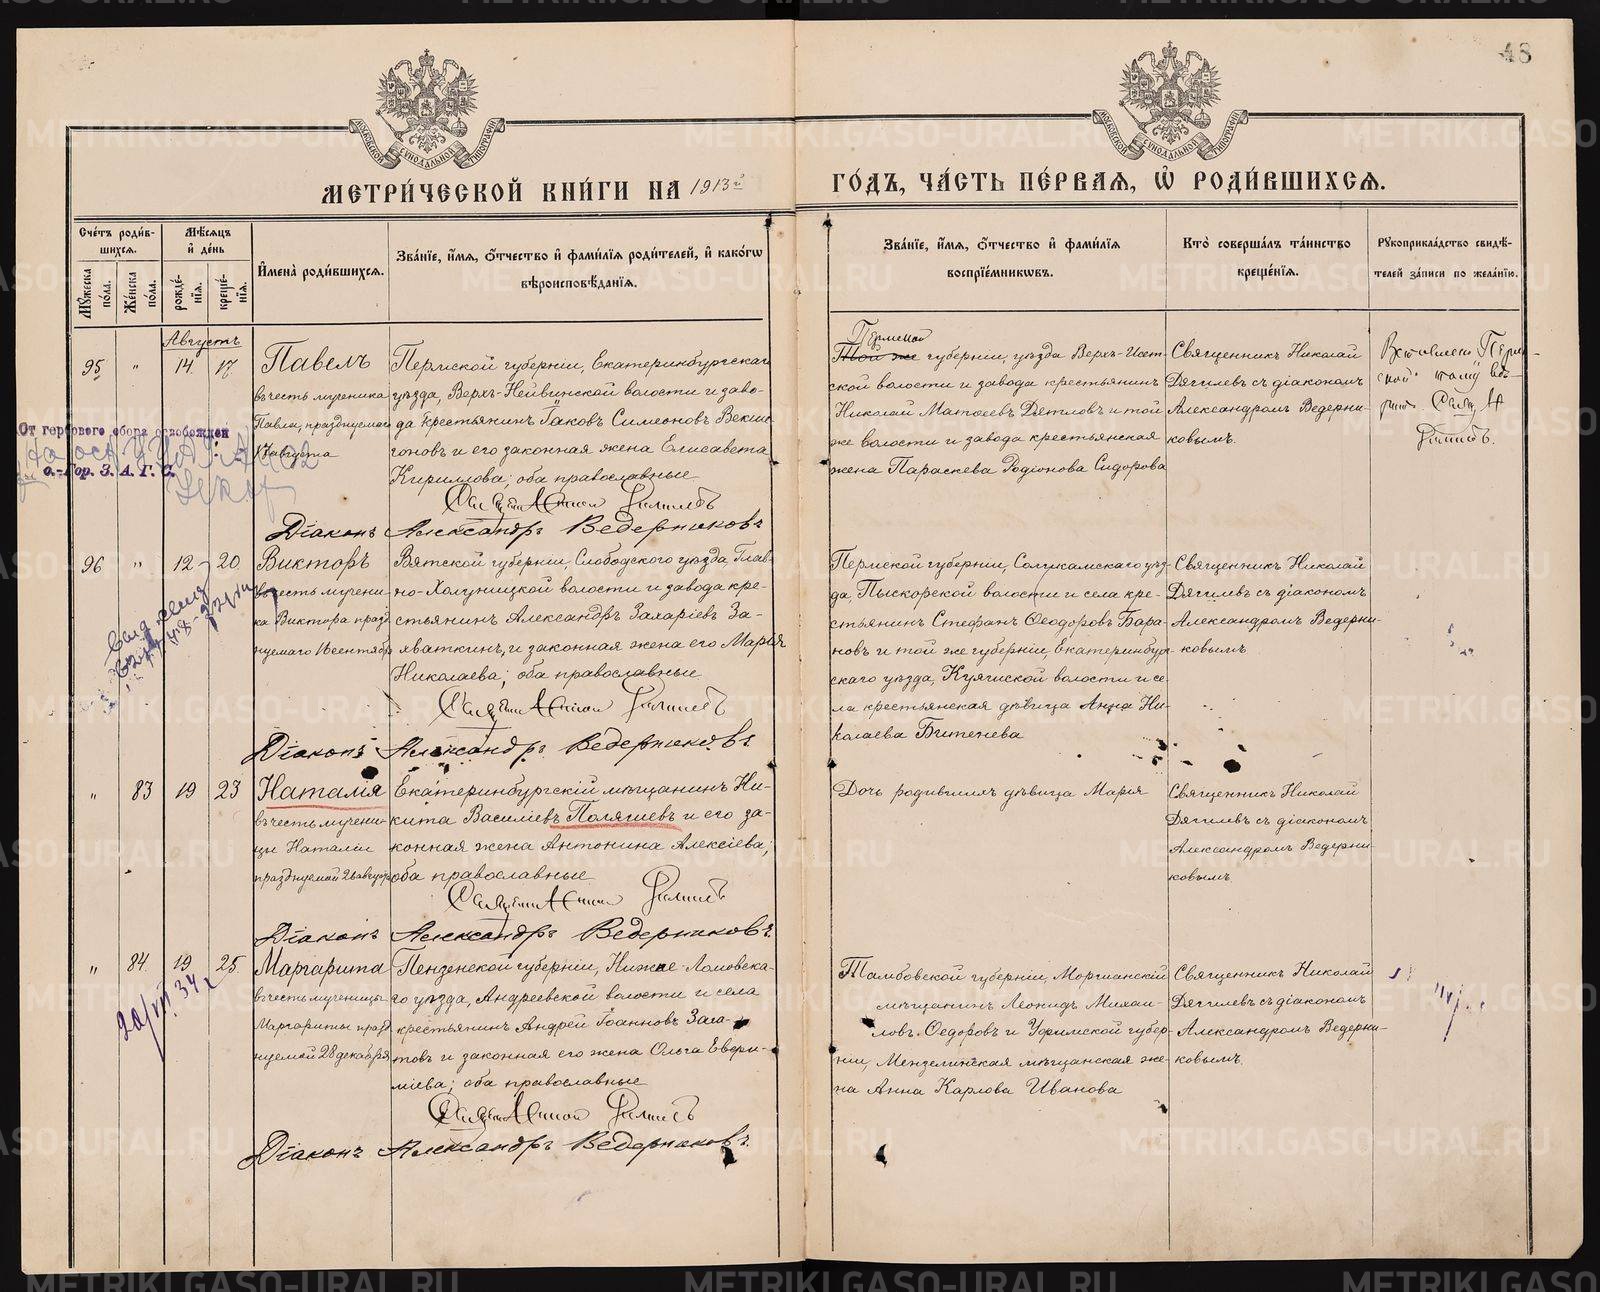 48
МЕТРИ́ЧЕСКОЙ КНИ́ГИ НА 1913й
ГО́ДЪ, ЧА́СТЬ ПЕ́РВАЯ, Ѿ РОДИ́ВШИХСЯ.
Сче́тъ роди́в-
шихся.
Мꙋ́жеска по́ла.
Же́нска по́ла.
Мѣ́сяцъ
и҆ де́нь
рожде́-
нїя.
креще́-
нїя.
И҆мена̀ роди́вшихся.
Зва́нїе, и҆́мя, ѻ҆́тчество и҆ фами́лїя роди́телей, и҆ како́гѡ
вѣроисповѣ́данїя.
Зва́нїе, и҆́мя, ѻ҆́тчество и҆ фами́лїя
воспрїе́мникѡвъ.
Кто̀ соверша́лъ та́инство
креще́нїя.
Рꙋкоприкла́дство свидѣ́-
телей за́писи по жела́нїю.
Августъ
95 " 14 17
Павелъ
въ честь мученика
Павла, празднуемаго
17 августа
Пермской губерніи, Екатеринбургскаго
уѣзда, Верхъ-Нейвинской волости и заво-
да крестьянинъ Іаковъ Симеоновъ Векши-
гоновъ и его законная жена Елисавета
Кириллова; оба православные
Діаконъ Александръ Ведерниковъ
Пермской
Той же губерніи, уѣзда Верхъ-Исет-
ской волости и завода крестьянинъ
Николай Матѳеевъ Дятловъ и той
же волости и завода крестьянская
жена Параскева Родіонова Сидорова
Священникъ Николай
Дягилевъ съ діакономъ
Александромъ Ведерни-
ковымъ.
От гербового сбора освобожден
о.-Гор. З. А. Г. С.
96 " 12 20
Викторъ
въ честь мучени-
ка Виктора празд-
нуемаго 16 сентября
Вятской губерніи, Слободского уѣзда, Глав-
но-Холуницкой волости и завода кре-
стьянинъ Александръ Захаріевъ За-
яваткинъ, и законная жена его Марья
Николаева; оба православные
Діаконъ Александръ Ведерниковъ.
Пермской губерніи, Соликамскаго уѣз-
да, Пыскорской волости и села кре-
стьянинъ Стефанъ Ѳеодоровъ Бара-
новъ и той же губерніи, Екатеринбург-
скаго уѣзда, Куяшской волости и се-
ла крестьянская дѣвица Анна Ни-
колаева
Священникъ Николай
Дягилевъ съ діакономъ
Александромъ Ведерни-
ковымъ
" 83 19 23
Наталія
въ честь мучени-
цы Наталіи
празднуемой 26 августа
Екатеринбургскій мѣщанинъ Ни-
кита Василіевъ и его за-
конная жена Антонина Алексіева;
оба православные
Діаконъ Александръ Ведерниковъ.
Дочь родившихъ дѣвица Марія
Священникъ Николай
Дягилевъ съ діакономъ
Александромъ Ведерни-
ковымъ
" 84 19 25
Маргарита
въ честь мученицы
Маргариты празд-
нуемой 28 декабря
Пензенской губерніи, Нижне-Ломовска-
го уѣзда, Андреевской волости и села
крестьянинъ Андрей Іоанновъ Зага-
товъ и законная его жена Ольга Евѳи-
міева; оба православные
Діаконъ Александръ Ведерниковъ.
Тамбовской губерніи, Моршанскій
мѣщанинъ Леонидъ Михаи-
ловъ Ѳедоровъ и Уфимской губер-
ніи, Мензелинская мѣщанская же-
на Анна Карлова Иванова
Священникъ Николай
Дягилевъ съ діакономъ
Александромъ Ведерни-
ковымъ.
20/VII 34 г
METRIKI.GASO-URAL.RU